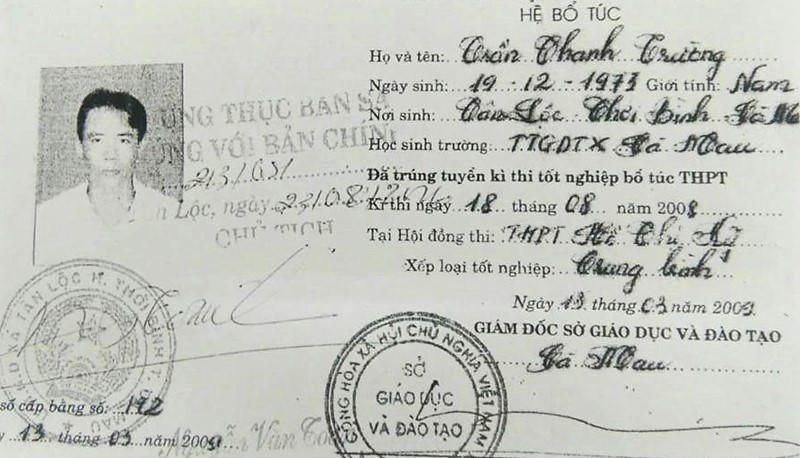 HỆ BỔ TÚC
Họ và tên: Trần Thanh Trường
Ngày sinh: 19-12-1973 Giới tính: Nam
Nơi sinh: Tân Lộc Thới Bình Cà M
Học sinh trường: TTGDTX Cà Mau
Đã trúng tuyển kì thi tốt nghiệp bổ túc THPT
Kì thi ngày 18 tháng 08 năm 2008
Tại Hội đồng thi: THPT Hồ Thị Kỷ
Xếp loại tốt nghiệp: Trung bình
Ngày 13 tháng 03 năm 2009
GIÁM ĐỐC SỞ GIÁO DỤC VÀ ĐÀO TẠO
Cà Mau
THỰC BẢN SA
VỚI BẢN CHÍN
Lộc, ngày
CHỦ TỊCH
XÃ TÂN LỘC H. THỚI BÌNH T.
MAU
CỘNG HÒA XÃ HỘI CHỦ NGHĨA VIỆT NAM
SỞ
GIÁO DỤC
VÀ ĐÀO TẠO
số cấp bằng số: 192
13 tháng 03 năm 2009
Nguyễn Văn